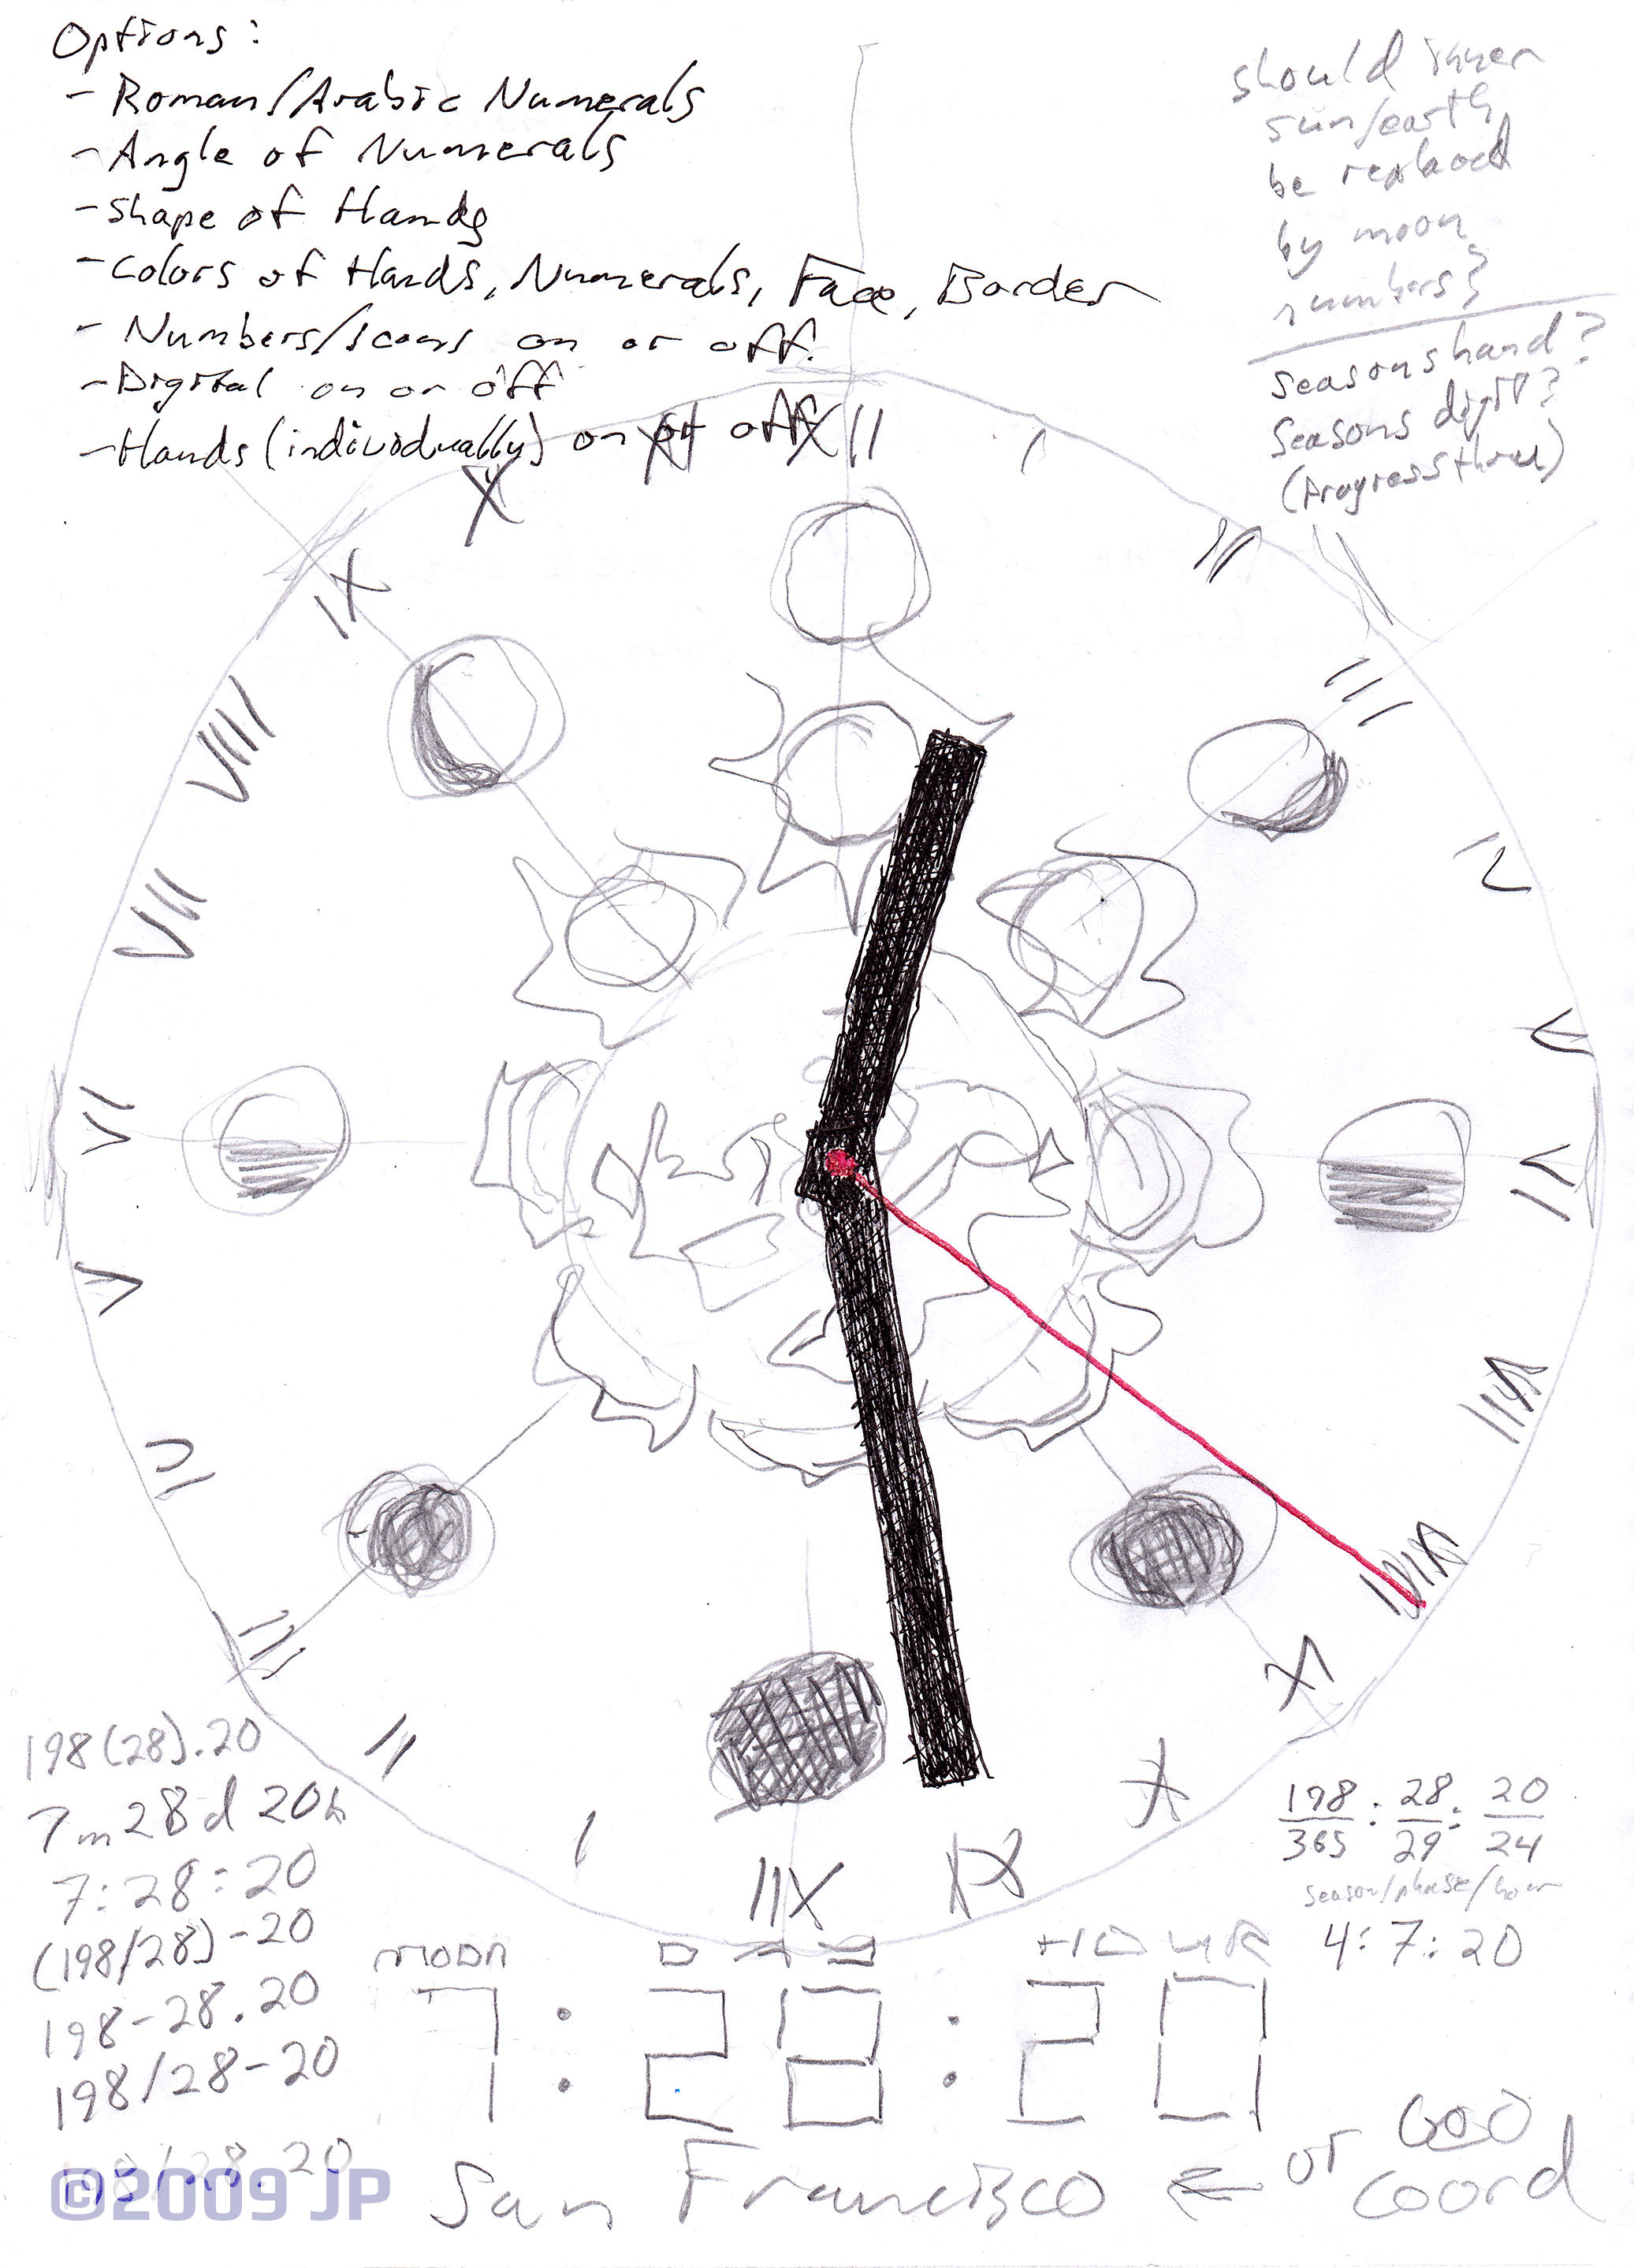 Options:
- Roman/Arabic Numerals
- Angle of Numerals
- Shape of Hands
- Colors of Hands, Numerals, Face, Border
- Numbers/Icons on or off.
- Digital on or off
- Hands (individually) on or off
should inner
sun/earth
be replaced
by moon
numbers?
Seasons hand?
Seasons digit?
(Progress thru)
XII
I
II
III
IV
V
VI
VII
VIIII
X
XII
I
II
III
IV
V
VI
VII
VIIII
IX
X
XI
198(28).20
7m 28d 20h
7:28:20
(198/28)-20
198-28.20
198/28-20
198/28.20
198/365 : 28/29 : 20/24
season/phase/hour
4:7:20
moon
7:28:20
San Francisco ← or Geo
Coord
©2009 JP